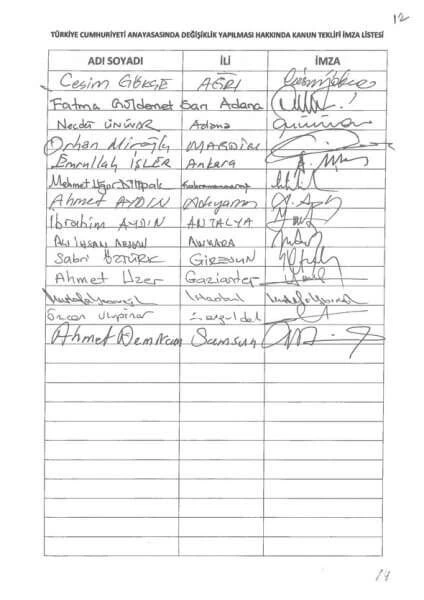 12
TÜRKİYE CUMHURİYETİ ANAYASASINDA DEĞİŞİKLİK YAPILMASI HAKKINDA KANUN TEKLİFİ İMZA LİSTESİ
ADI SOYADI İLİ İMZA
Cesim GÖKÇE AĞRI
Fatma Güldemet Sarı Adana
Necdet ÜNÜVAR Adana
Orhan Miroğlu MARDİN
Emrullah İŞLER Ankara
Mehmet Uğur Dilipak Kahramanmaraş
Ahmet AYDIN Adıyaman
İbrahim AYDIN ANTALYA
Ali İhsan ARSLAN ANKARA
Sabri ÖZTÜRK GİRESUN
Ahmet Uzer Gaziantep
İstanbul
Özcan Ulupınar Zonguldak
Ahmet Demircan Samsun
14